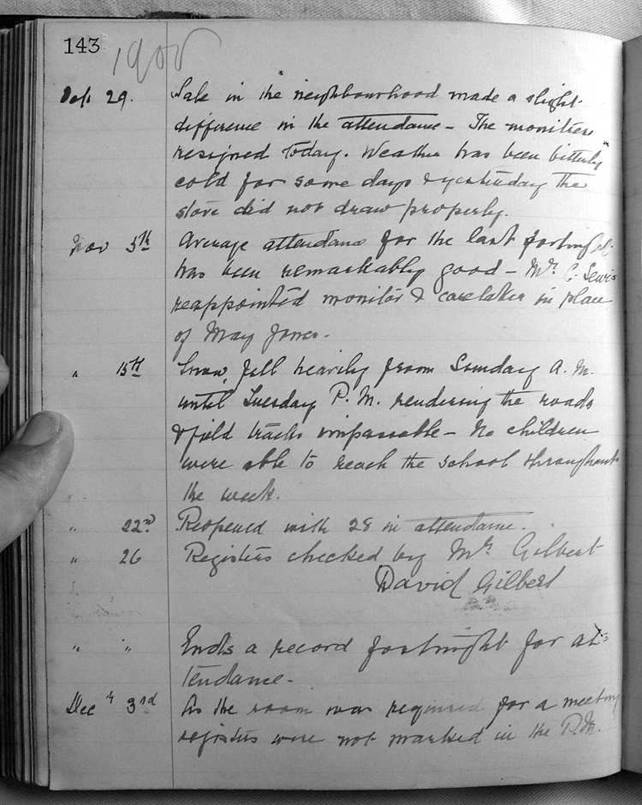 143 1900
Oct. 29. Sale in the neighbourhood made a slight
difference in the attendance - The monitress
resigned today. Weather has been bitterly
cold for some days & yesterday the
stove did not draw properly.
Nov 5th Average attendance for the last fortnight
has been remarkably good - Mr. C. Lewis
reappointed monitor & caretaker in place
of May Jones -
" 15th Snow fell heavily from Sunday A.M.
until Tuesday P.M. rendering the roads
& field tracks impassable - No children
were able to reach the school throughout
the week.
" 22nd Reopened with 28 in attendance.
" 26 Registers checked by Mr. Gilbert
David Gilbert
" " Ends a record fortnight for at-
tendance -
Dec 3rd As the room was required for a meeting
registers were not marked in the P.M.